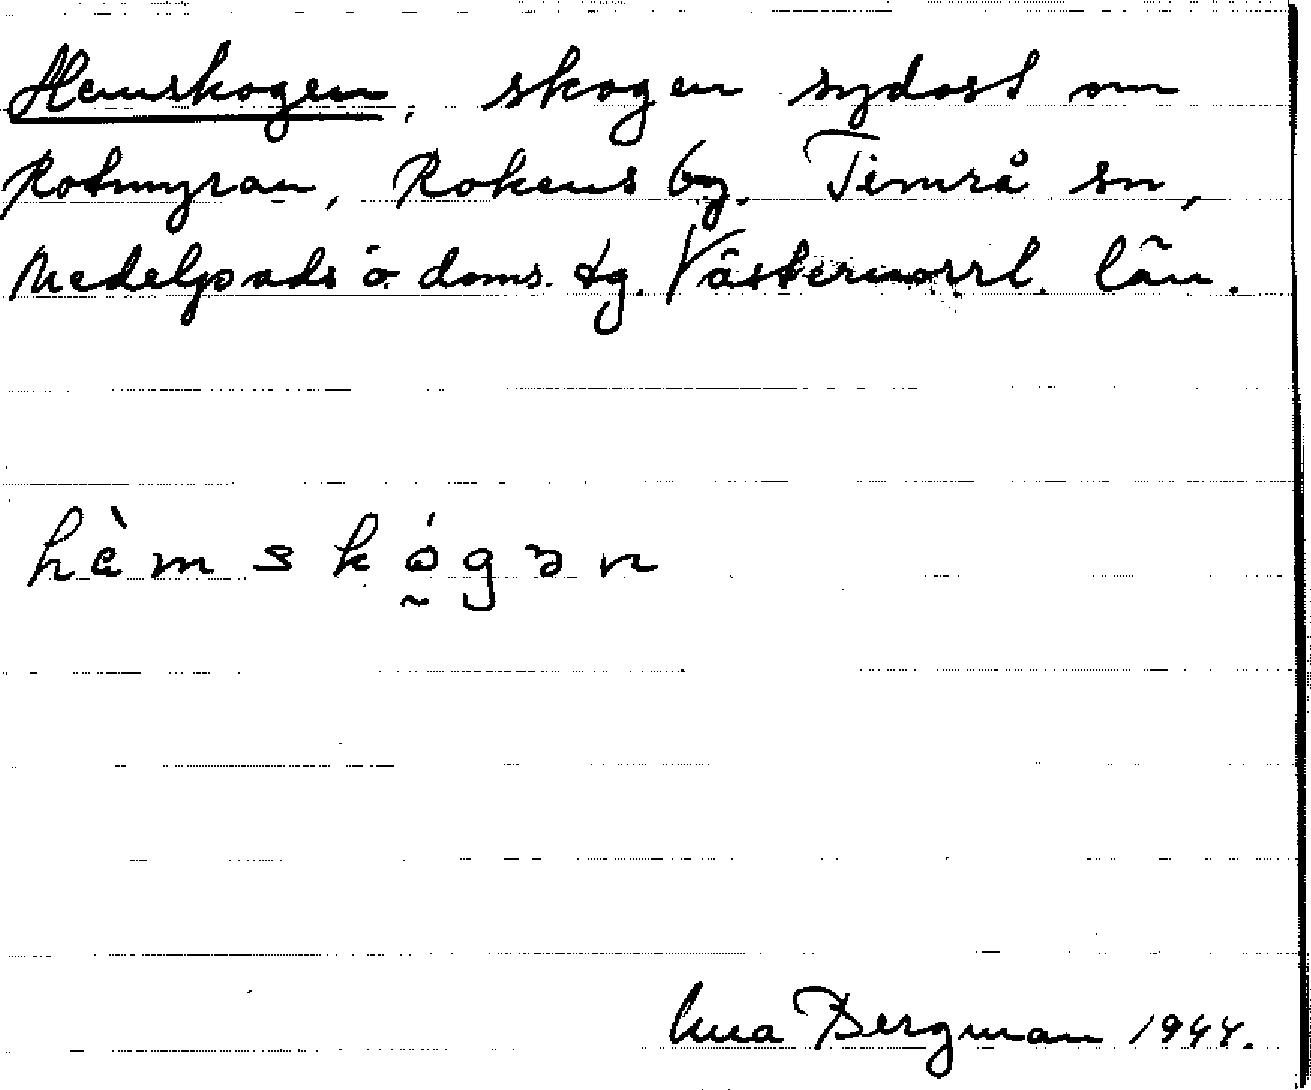 Hemskogen, skogen sydost om
Rotmyran, Rokens by. Timrå sn,
Medelpads ö. doms. tg. Västernorrl. län.
hèmskó̰gən
Bergman 1944.